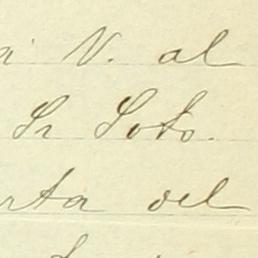 a V. al
Sr Soto.
rta del